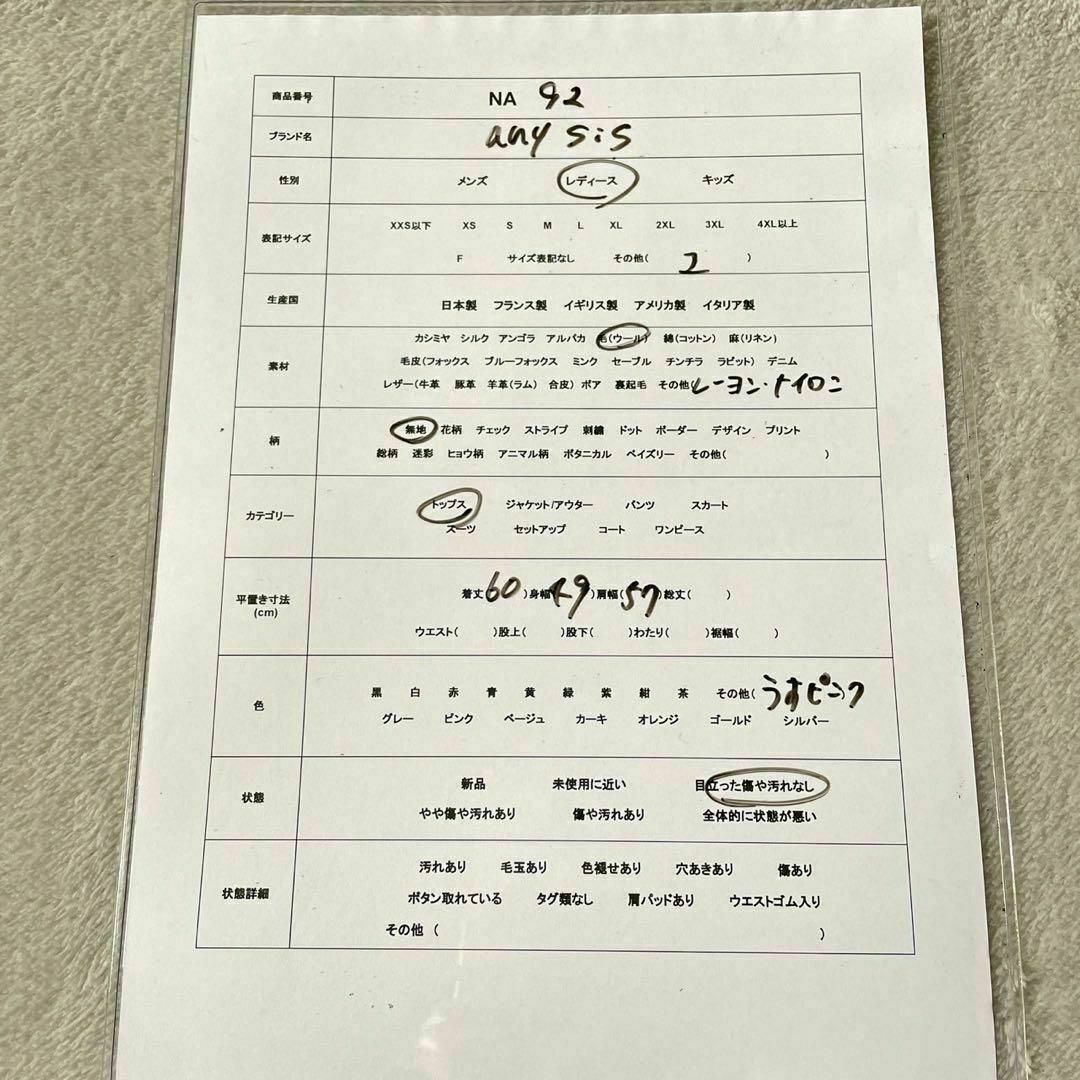 商品番号 NA 92
ブランド名 any sis
性別 メンズ レディース キッズ
XXS以下 XS S M L XL 2XL 3XL 4XL以上
表記サイズ
F サイズ表記なし その他( 2 )
生産国 日本製 フランス製 イギリス製 アメリカ製 イタリア製
カシミヤ シルク アンゴラ アルパカ 毛(ウール) 綿(コットン) 麻(リネン)
素材 毛皮(フォックス ブルーフォックス ミンク セーブル チンチラ ラビット) デニム
レザー(牛革 豚革 羊革(ラム) 合皮) ボア 裏起毛 その他( レーヨン・ナイロン
無地 花柄 チェック ストライプ 刺繍 ドット ボーダー デザイン プリント
柄
総柄 迷彩 ヒョウ柄 アニマル柄 ボタニカル ペイズリー その他( )
トップス ジャケット/アウター パンツ スカート
カテゴリー
スーツ セットアップ コート ワンピース
着丈 60 )身幅( 49 )肩幅( 57 )総丈( )
平置き寸法
(cm)
ウエスト( )股上( )股下( )わたり( )裾幅( )
黒 白 赤 青 黄 緑 紫 紺 茶 その他( うすピンク
色
グレー ピンク ベージュ カーキ オレンジ ゴールド シルバー
新品 未使用に近い 目立った傷や汚れなし
状態
やや傷や汚れあり 傷や汚れあり 全体的に状態が悪い
汚れあり 毛玉あり 色褪せあり 穴あきあり 傷あり
状態詳細 ボタン取れている タグ類なし 肩パッドあり ウエストゴム入り
その他 ( )